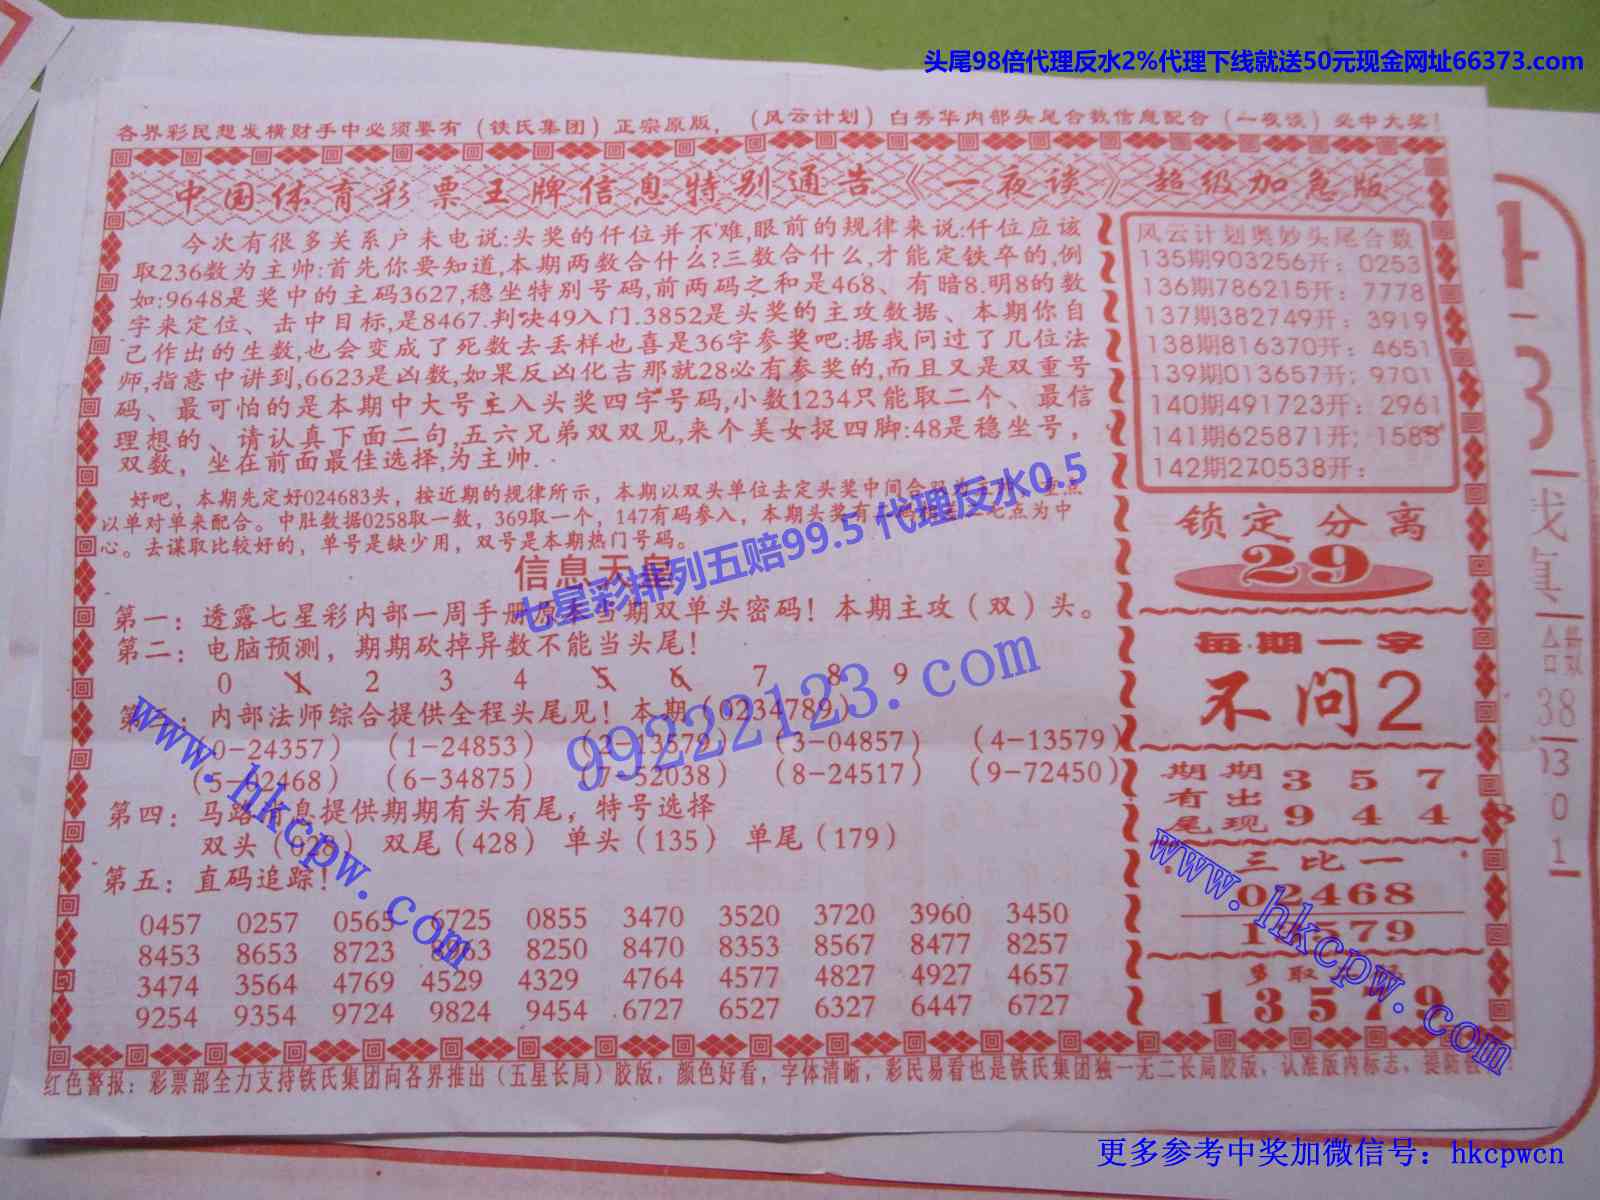 头尾98倍代理反水2%代理下线就送50元现金网址66373.com
各界彩民想发横财手中必须要有（铁氏集团）正宗原版，（风云计划）白秀华内部头尾合数信息配合（一夜谈）必中大奖！
中国体育彩票王牌信息特别通告《一夜谈》超级加急版
今次有很多关系户来电说:头奖的仟位并不难,眼前的规律来说:仟位应该
取236数为主帅:首先你要知道,本期两数合什么?三数合什么,才能定铁卒的,例
如:9648是奖中的主码3627,稳坐特别号码,前两码之和是468、有暗8.明8的数
字来定位、击中目标,是8467.判决49入门.3852是头奖的主攻数据、本期你自
己作出的生数,也会变成了死数去丢样也喜是36字参奖吧:据我问过了几位法
师,指意中讲到,6623是凶数,如果反凶化吉那就28必有参奖的,而且又是双重号
码、最可怕的是本期中大号主入头奖四字号码,小数1234只能取二个、最信
理想的、请认真下面二句,五六兄弟双双见,来个美女捉四脚:48是稳坐号，
双数，坐在前面最佳选择,为主帅.
好吧，本期先定好024683头，按近期的规律所示，本期以双头单位去定头奖中间合双为
以单对单来配合。中肚数据0258取一数，369取一个，147有码参入，本期头奖有 七点为中
心。去谋取比较好的，单号是缺少用，双号是本期热门号码。
信息天皇
第一：透露七星彩内部一周手册原本当期双单头密码！本期主攻（双）头。
第二：电脑预测，期期砍掉异数不能当头尾！
0 1 2 3 4 5 6 7 8 9
第三：内部法师综合提供全程头尾见！本期（0234789）
（0-24357）（1-24853）（2-13579）（3-04857）（4-13579）
（5-02468）（6-34875）（7-52038）（8-24517）（9-72450）
第四：马路信息提供期期有头有尾，特号选择
双头（026）双尾（428）单头（135）单尾（179）
第五：直码追踪！
0457 0257 0565 6725 0855 3470 3520 3720 3960 3450
8453 8653 8723 8250 8470 8353 8567 8477 8257
3474 3564 4769 4529 4329 4764 4577 4827 4927 4657
9254 9354 9724 9824 9454 6727 6527 6327 6447 6727
风云计划奥妙头尾合数
135期903256开：0253
136期786215开：7778
137期382749开：3919
138期816370开：4651
139期013657开；9701
140期491723开：2961
141期625871开；1585
142期270538开：
锁定分离
29
每期一字
不问2
期期 3 5 7
有出
尾现 9 4 4 8
三比一
02468
13579
多取
13579
红色警报：彩票部全力支持铁氏集团向各界推出（五星长局）胶版，颜色好看，字体清晰，彩民易看也是铁氏集团独一无二长局胶版，认准版内标志，提防
七星彩排列五赔99.5 代理反水0.5
99222123.com
www.hkcpw.com
www.hkcpw.com
3
找
真
合数
38
13
0
1
更多参考中奖加微信号：hkcpwcn